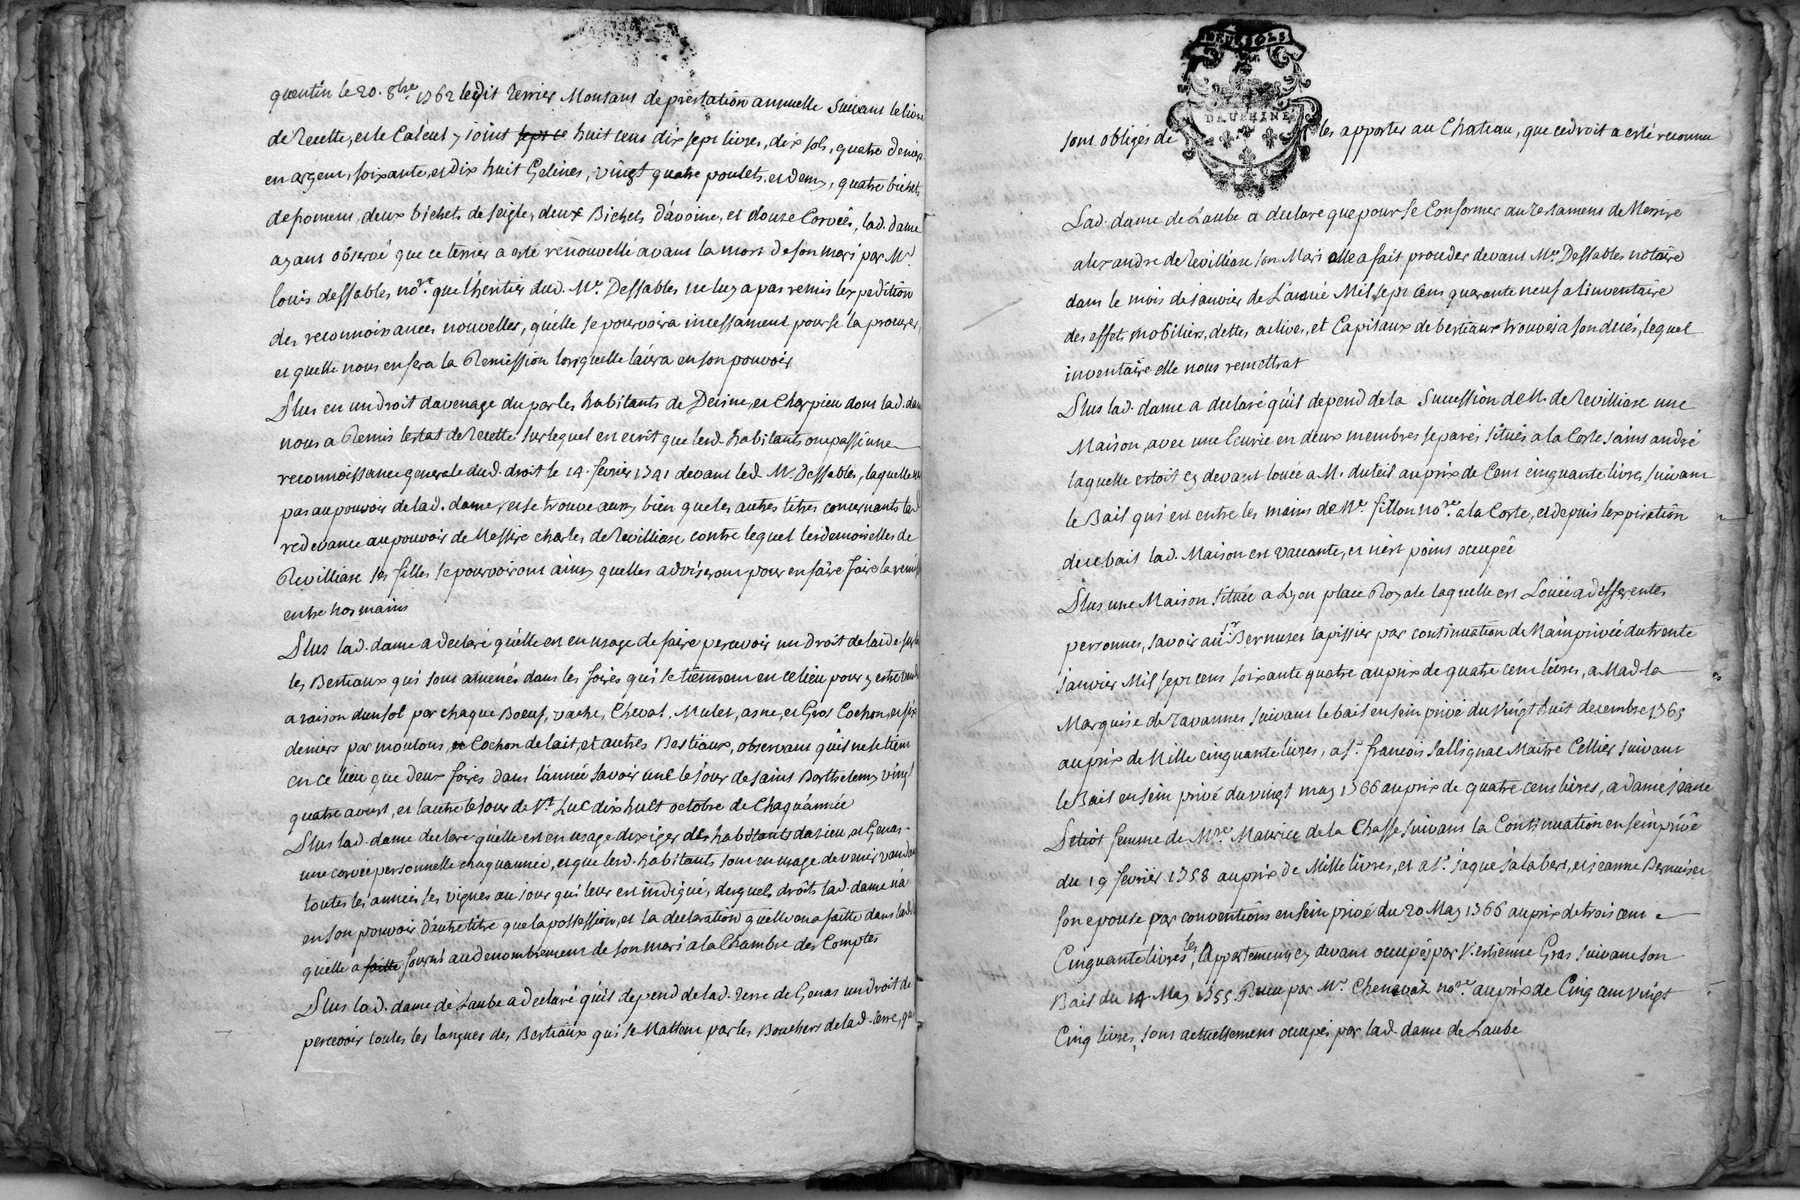 quentin le 20. 8bre 1762 ledit terrier Montant de prestation annuelle suivant le livre
de recette, et le Calcul y joint sept ce huit cens dix sept livres, dix sols, quatre deniers
en argent, soixante, et dix huit Gelines, vingt quatre poulets et demy, quatre bichets
de froment, deux bichets de seigle, deux Bichets d'avoine, et douze Corvées, lad. dame
ayant observé que ce terrier a esté renouvellé avant la mort de son mari par Mr.
louis dessables nore. que l'heritier dud. Me. Dessables ne luy a pas remis l'expedition
des reconnoissances nouvelles, qu'elle se pourvoira incessament pour se la procurer,
et quelle nous en fera la Remission lorsquelle l'aura en son pouvoir
Plus en un droit davenage du par les habitants de Decine, et Charpieu dont lad. dame
nous a Remis lestat de recette sur lequel en ecrit que lesd. habitants ont passé une
reconnoissance generale dud. droit le 14. fevrier 1741 devant led. Me. Dessables, laquelle n'est
pas au pouvoir de lad. dame, et se trouve aussy bien que les autres titres concernants lad.
redevance au pouvoir de Messire charles de Revilliase contre lequel les demoiselles de
Revilliase ses filles se pourvoiront ainsy quelles adviseront pour en faire faire la remise
entre nos mains
Plus lad. dame a declaré qu'elle est en usage de faire percevoir un droit de laide sur
les Bestiaux qui sont amenés dans les foires qui se tiennent en ce lieu pour y estre vendus
a raison d'un sol par chaque Boeuf, vache, Cheval, Mulet, asne, et Gros Cochon, et six
deniers par moutons, et Cochon de lait, et autres Bestiaux, observant qu'il ne se tient
en ce lieu que deux foires dans l'année savoir une le jour de saint Barthelemy vingt
quatre aoust, et l'autre le jour de St. Luc dix huit octobre de Chaque année
Plus lad. dame declare qu'elle est en usage dexiger des habitants dazieu, et Genas
une corvée personnelle chaque année, et que lesd. habitants sont en usage de venir vandanger
toutes les années les vignes au jour qui leur est indiqué, desquels droits lad. dame n'a
en son pouvoir d'autre titre que la possession, et la declaration qu'elle en a faitte dans
qu'elle a faitte fourni au denombrement de son mari a la Chambre des Comptes
Plus lad. dame de Laube a declaré qu'il depend de lad. terre de Genas un droit de
percevoir toutes les langues des Bestiaux qui se Mattent par les Bouchers de lad. terre, qui
DEUX SOLS
DAUPHINÉ
sont obligés de les apporter au Chateau, que ce droit a esté reconnu
Lad. dame de Laube a declaré que pour se Conformer au testament de Messire
alexandre de Revilliase son Mari elle a fait proceder devant Me. Dessables notaire
dans le mois de janvier de L'année Mil sept cens quarante neuf a l'inventaire
des effets mobiliers, dettes actives, et Capitaux de bestiaux trouvés a son decès, lequel
inventaire elle nous remettrat
Plus lad. dame a declaré qu'il depend de la Succession de M. de Revilliase une
Maison, avec une Ecurie en deux membres separés situés a la Coste saint andré
laquelle estoit cy devant louée a M. duteil au prix de Cent cinquante livres, suivant
le Bail qui est entre les mains de Me. fillon nore. a la Coste, et depuis l'expiration
de ce bail lad. Maison est vaccante, et n'est point occupée
Plus une Maison située a Lyon place Royale laquelle est Louée a differentes
personnes, savoir au sr. Bernuset tapissier par continuation de Main privée du trente
janvier Mil sept cent soixante quatre au prix de quatre cent livres, a Mad. la
Marquise de tavannes suivant le bail en sein privé du vingt huit decembre 1765
au prix de Mille cinquante livres, a Sr. françois sallignat Maitre Cellier suivant
le Bail en sein privé du vingt may 1766 au prix de quatre cens livres, a dame jeanne
femme de Mre. Maurice de la Chasse suivant la Continuation en sein privé
du 19 fevrier 1758 au prix de Mille livres, et a Sr. jaque jalabert, et jeanne Bernuset
son epouse par conventions en sein privé du 20 May 1766 au prix de trois cent
Cinquante livres, les appartements cy devant occupés par Sr. estienne Gras suivant son
Bail du 14 May 1755 Receu par Me. Chenavaz nore. au prix de Cinq cent vingt
Cinq livres, sont actuellement occupés par lad. dame de Laube